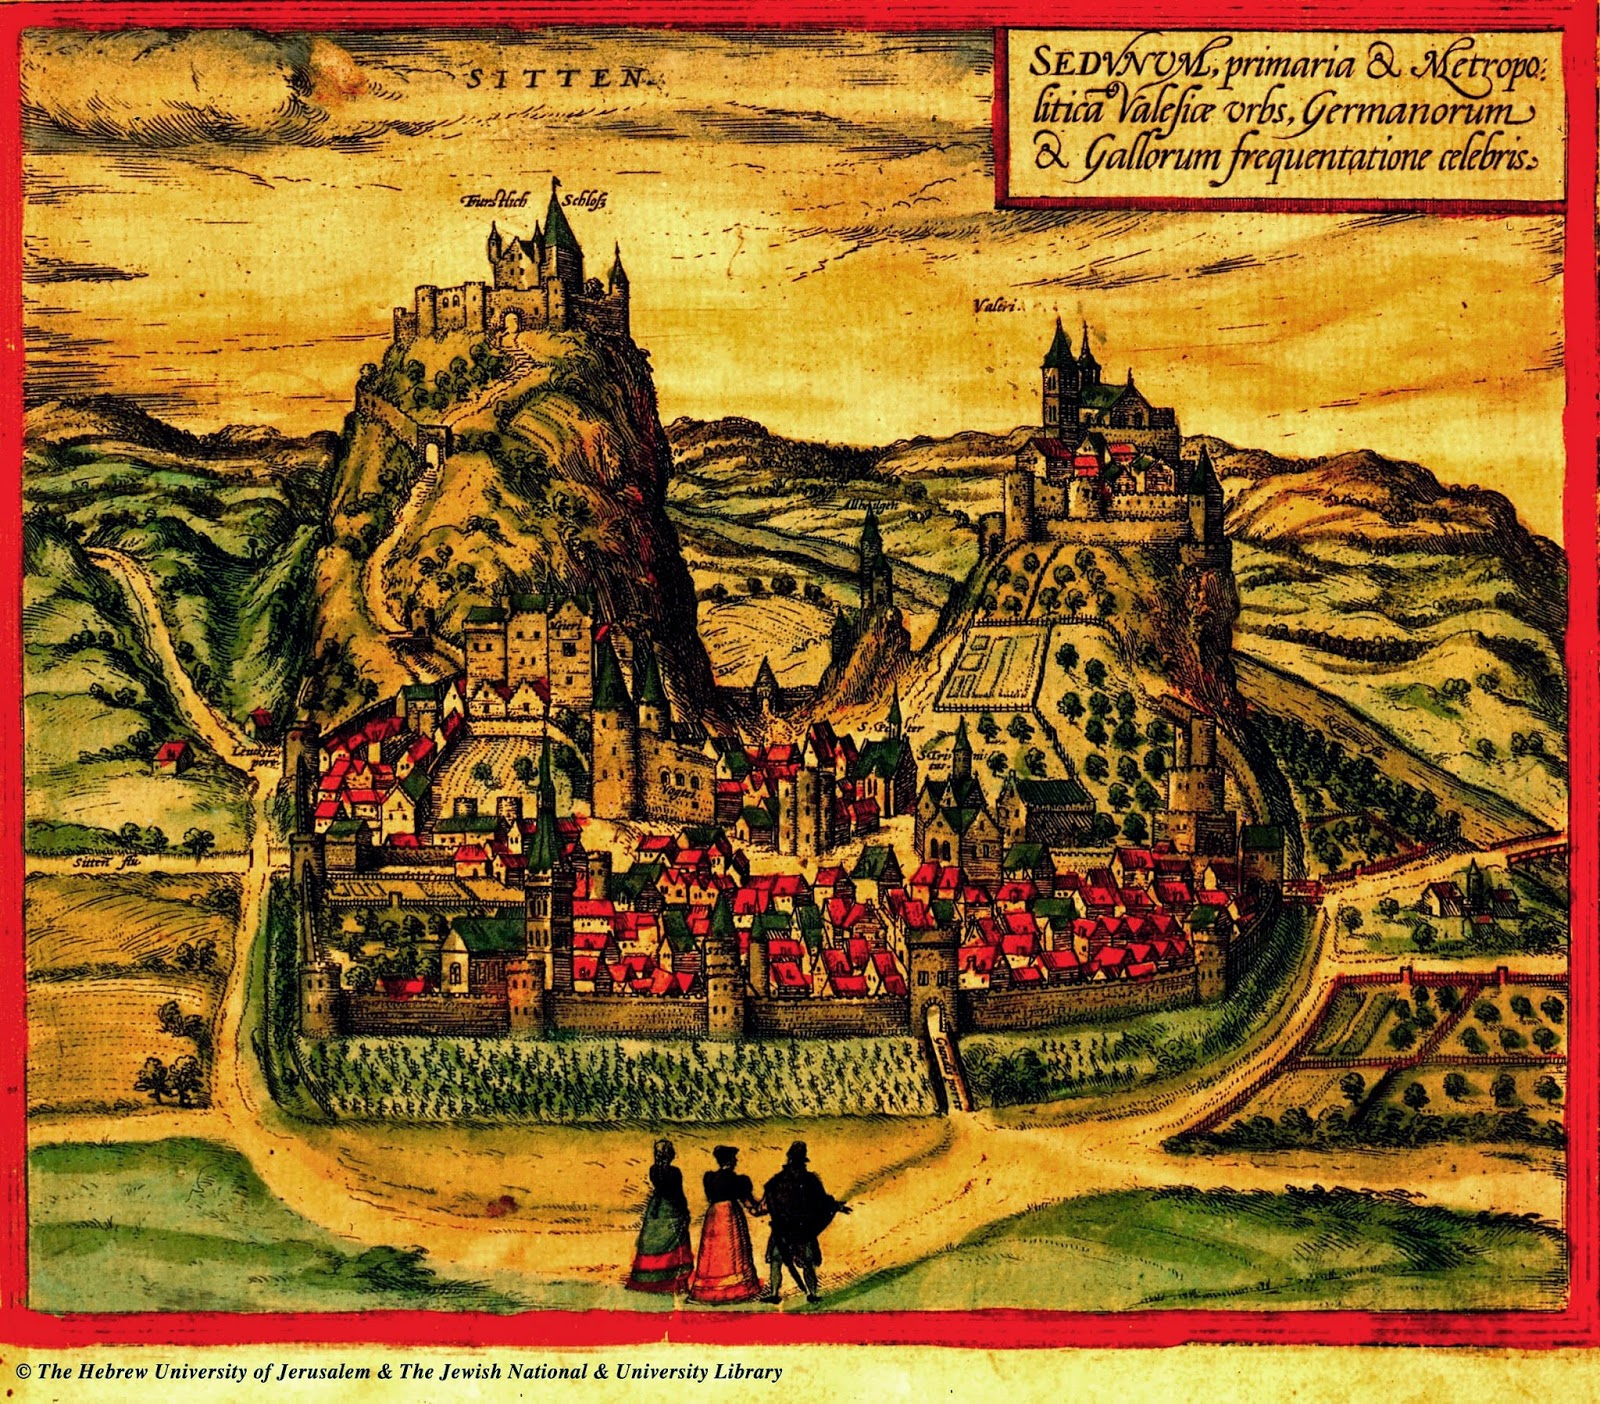 SITTEN
SEDVNVM, primaria & Metropo:
liticā Valesiæ vrbs, Germanorum
& Gallorum frequentatione celebris.
Furstlich Schlosz
Valeri.
Allheilgen
Meieri
S. Peter
Leucker
port
Sitten flu
© The Hebrew University of Jerusalem & The Jewish National & University Library